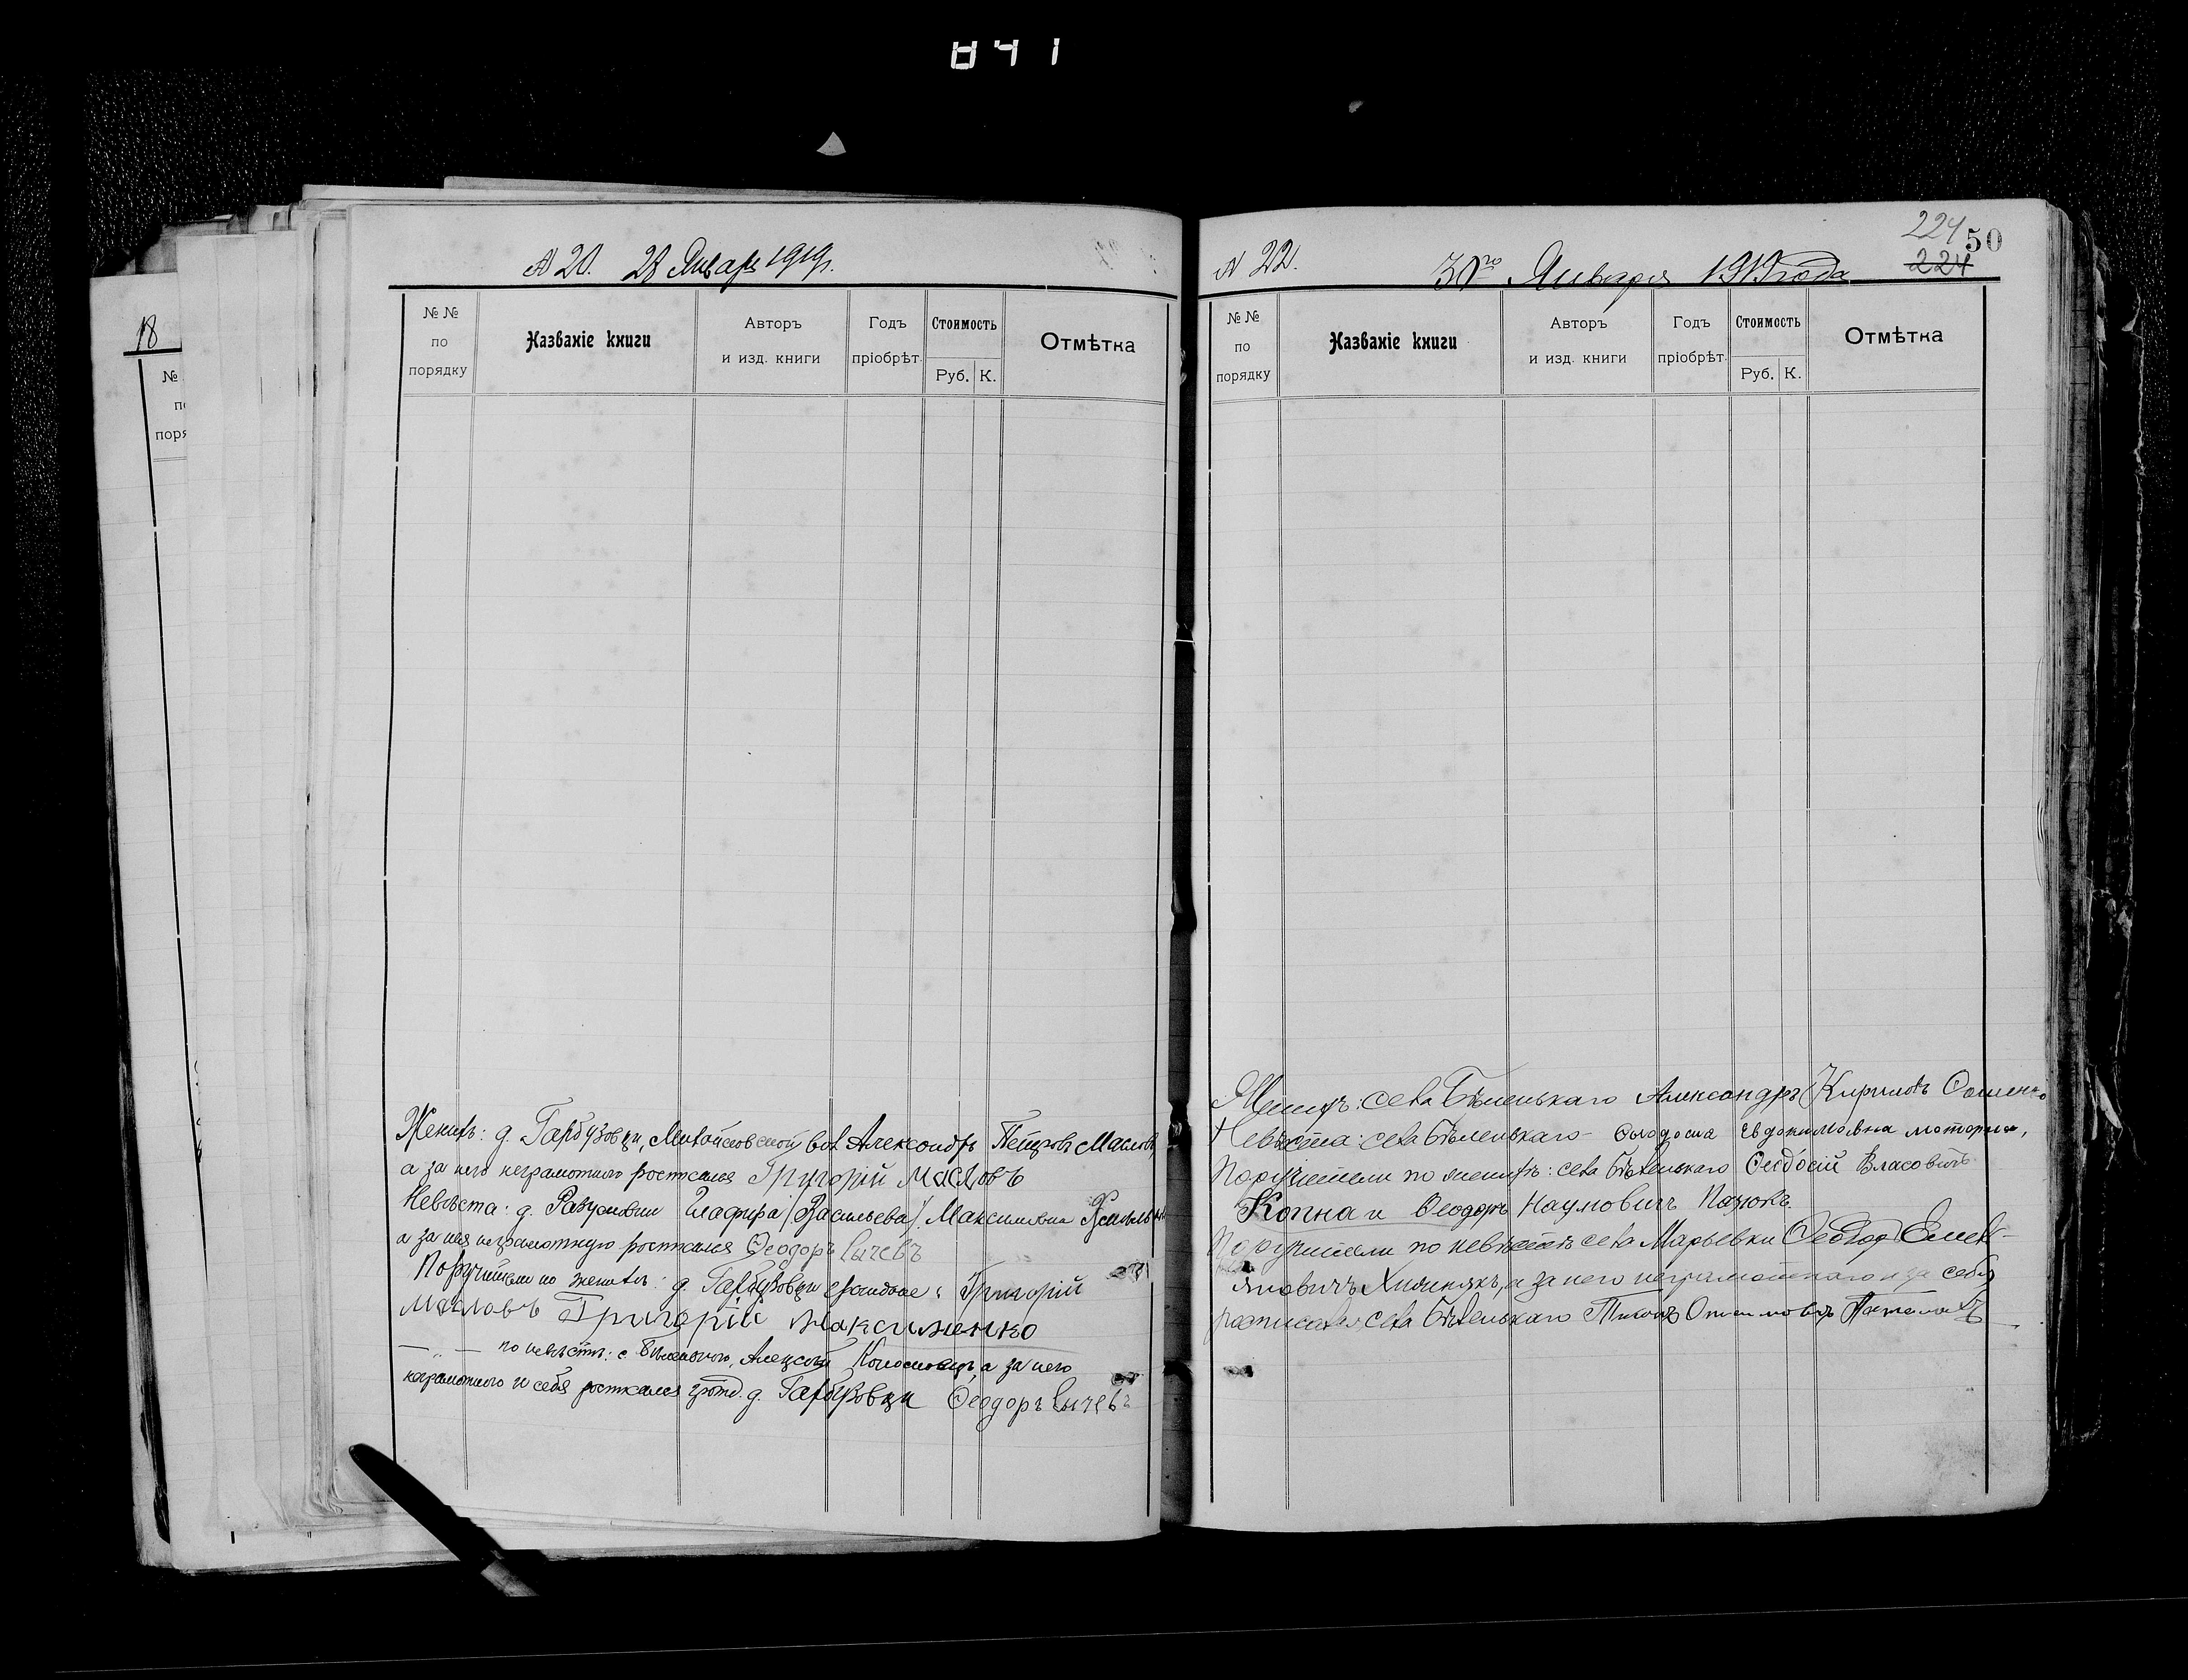 841
18
№
по
поря
№ 20. 28 Январь 1919 г.
№ №
по
порядку
Названіе книги
Авторъ
и изд. книги
Годъ
пріобрѣт.
Стоимость
Руб. К.
Отмѣтка
Женихъ: д. Гарбузовки, вол. Александръ Петровъ Масловъ,
а за него неграмотнаго росписался Григорій Масловъ
Невѣста: д. Глафира (Васильева) Максимовна
а за нея неграмотную росписался Ѳеодоръ Сычевъ
Поручители по женихѣ: д. Гарбузовки граждане: Григорій
Масловъ Григорій Максименко
— „ — по невѣстѣ: с. Бѣленькаго, Алексѣй а за него
неграмотнаго и себя росписался гражд. д. Гарбузовки Ѳеодоръ Сычевъ
224 50
224
№ 22. 31го Января 1919 года
№ №
по
порядку
Названіе книги
Авторъ
и изд. книги
Годъ
пріобрѣт.
Стоимость
Руб. К.
Отмѣтка
Женихъ: села Бѣленькаго Александръ Кириловъ
Невѣста: села Бѣленькаго – Ѳеодосія Евдокимовна Моторная,
Поручители по женихѣ: села Бѣленькаго Ѳеодосій Власовичъ
Копна и Ѳеодоръ Наумовичъ
Поручители по невѣстѣ села Марьевки Ѳеодоръ Емель-
яновичъ Хижнякъ, а за него неграмотнаго и за себя
росписался села Бѣленькаго